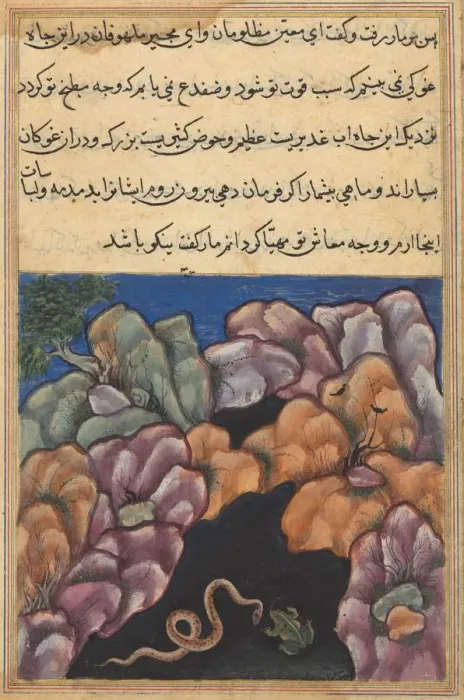 پس بر مار رفت و کفت ای معین مظلومان و ای مجیر ملهوفان درین چاه
غوکی نمی بینم که سبب قوت تو شود و ضفدع نمی یابم که وجه مطبخ تو کردد
نزدیک این چاه اب غدیریست عظیم و حوض کثیریست بزرک و دران غوکان
بسیاراند و ماهی بیشمار اکر فرمان دهی بیرون روم ایشانرا بدمدمه ولباسات
اینجا ارم و وجه معاش تو مهیّا کردانم مار کفت نیکو باشد